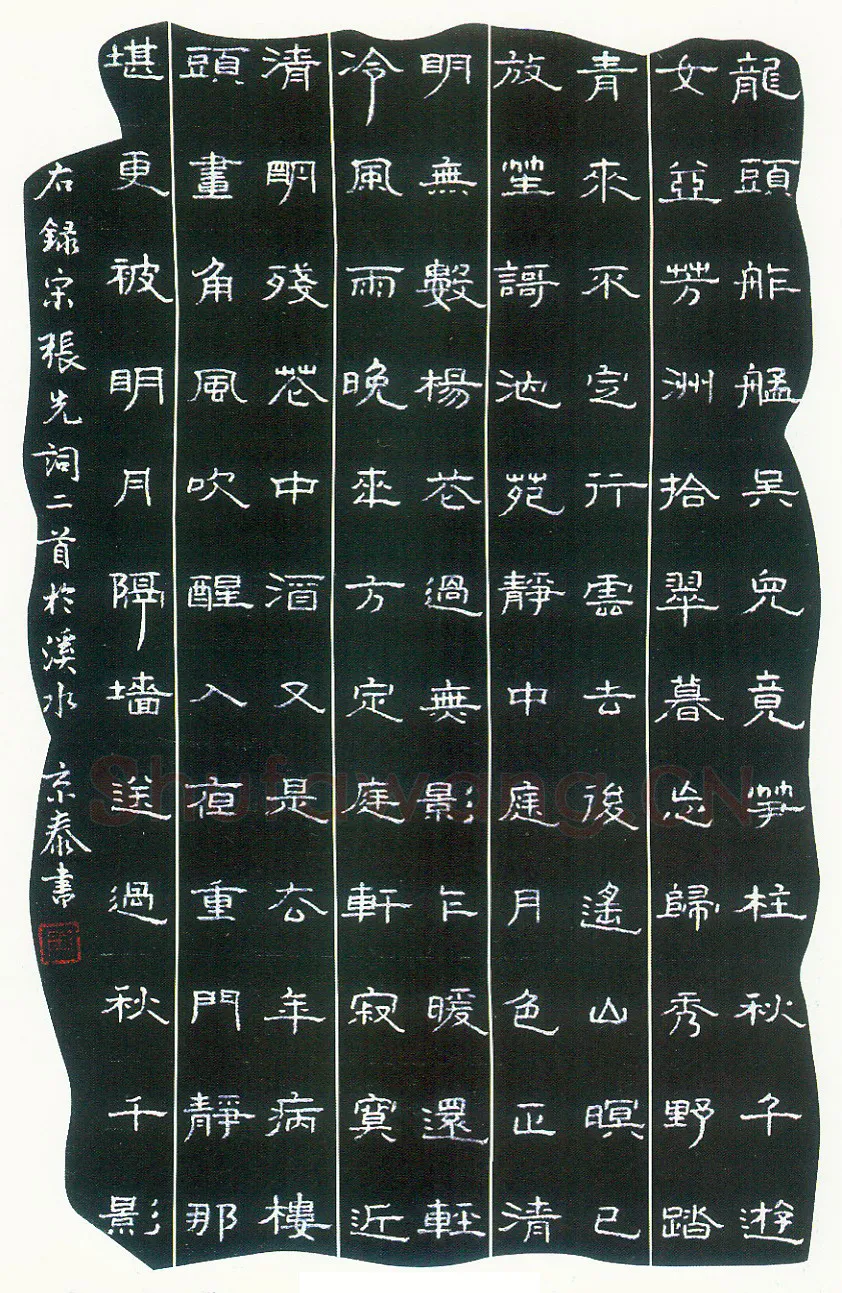 龍頭舴艋吳兒竟筝柱秋千遊
女並芳洲拾翠暮忘歸秀野踏
青來不定行雲去後遙山暝已
放笙謌池苑靜中庭月色正清
明無數楊花過無影乍暖還輕
冷風雨晚來方定庭軒寂寞近
清明殘花中酒又是去年病樓
頭畫角風吹醒入夜重門靜那
堪更被明月隔墻送過秋千影
右録宋張先詞二首於溪水 京泰書
Shufawang.CN